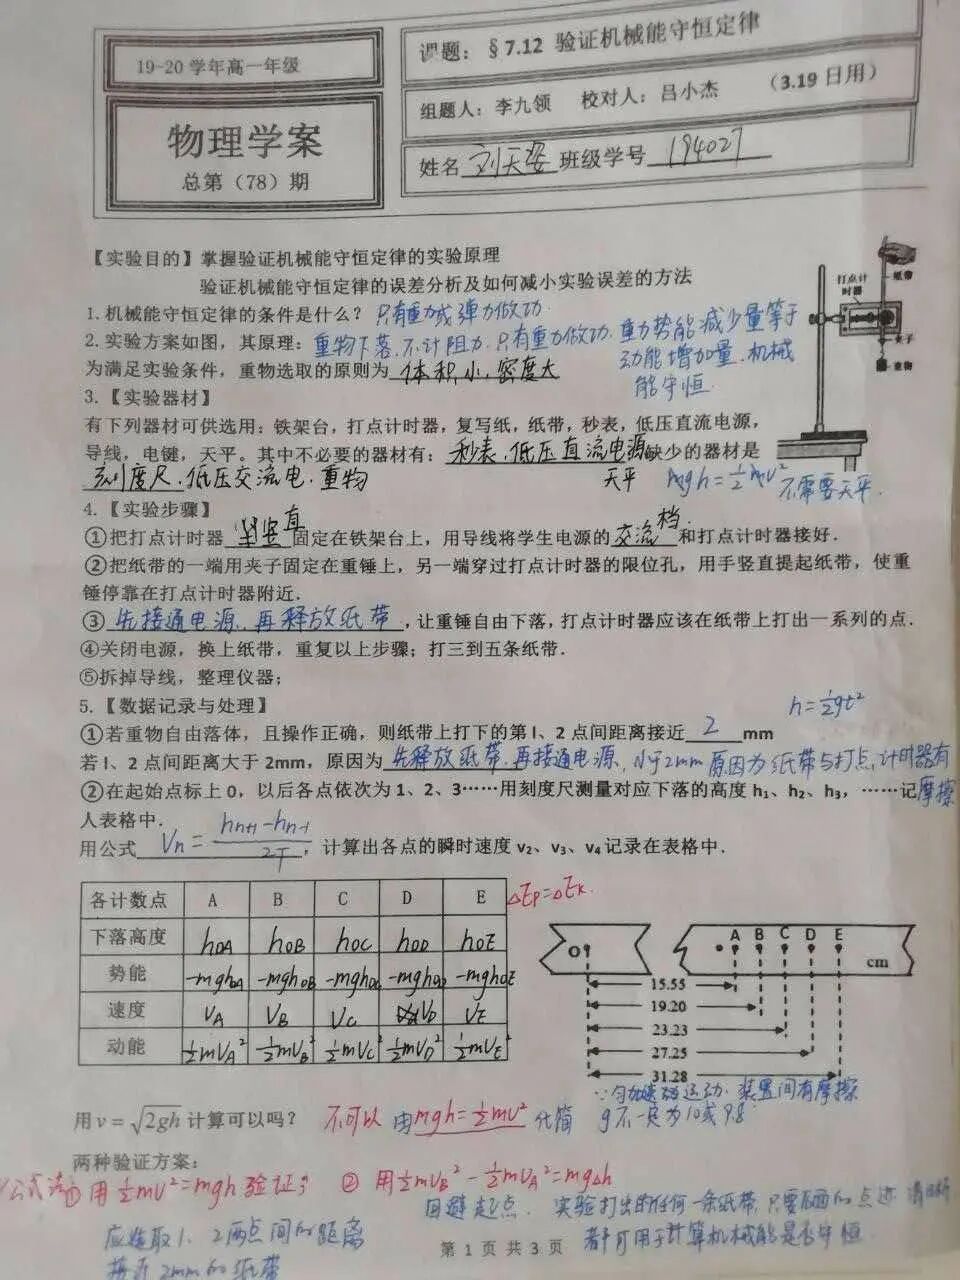 19-20 学年高一年级
物理学案
总第（78）期
课题：§7.12 验证机械能守恒定律
组题人：李九领 校对人：吕小杰 （3.19 日用）
姓名 刘天姿 班级学号 194027
【实验目的】掌握验证机械能守恒定律的实验原理
验证机械能守恒定律的误差分析及如何减小实验误差的方法
1.机械能守恒定律的条件是什么？ 只有重力或弹力做功.
2.实验方案如图，其原理：重物下落.不计阻力.只有重力做功.重力势能减少量等于
动能增加量.机械
能守恒.
为满足实验条件，重物选取的原则为 体积小,密度大
打点计时器
纸带
夹子
重物
3.【实验器材】
有下列器材可供选用：铁架台，打点计时器，复写纸，纸带，秒表，低压直流电源，
导线，电键，天平。其中不必要的器材有：秒表.低压直流电源 缺少的器材是
天平
刻度尺.低压交流电.重物
mgh=½mv² 不需要天平.
4.【实验步骤】
①把打点计时器 竖直 固定在铁架台上，用导线将学生电源的 交流档 和打点计时器接好.
②把纸带的一端用夹子固定在重锤上，另一端穿过打点计时器的限位孔，用手竖直提起纸带，使重
锤停靠在打点计时器附近.
③ 先接通电源.再释放纸带 ，让重锤自由下落，打点计时器应该在纸带上打出一系列的点.
④关闭电源，换上纸带，重复以上步骤；打三到五条纸带.
⑤拆掉导线，整理仪器；
5.【数据记录与处理】
h=½gt²
①若重物自由落体，且操作正确，则纸带上打下的第l、2 点间距离接近 2 mm
若l、2 点间距离大于 2mm，原因为 先释放纸带.再接通电源. 小于2mm原因为纸带与打点计时器有
摩擦
②在起始点标上 0，以后各点依次为 1、2、3……用刻度尺测量对应下落的高度 h₁、h₂、h₃，……记
人表格中.
用公式 Vn=(hn+1-hn-1)/2T ，计算出各点的瞬时速度 v₂、v₃、v₄ 记录在表格中.
各计数点 A B C D E
△Ep=△Ek.
下落高度 hOA hOB hOC hOD hOE
势能 -mghOA -mghOB -mghOC -mghOD -mghOE
速度 VA VB VC VD VE
动能 ½mVA² ½mVB² ½mVC² ½mVD² ½mVE²
O A B C D E
cm
15.55
19.20
23.23
27.25
31.28
∵匀加速运动.装置间有摩擦
g不一定为10或9.8
用 v=√2gh 计算可以吗？ 不可以 由mgh=½mv² 化简
两种验证方案：
① 用½mV²=mgh验证 ② 用½mVB²-½mVA²=mg△h
回避起点. 实验打出的任何一条纸带,只要后面的点迹清晰
都可用于计算机械能是否守恒
应选取1、2两点间的距离
接近2mm的纸带
第 1 页 共 3 页